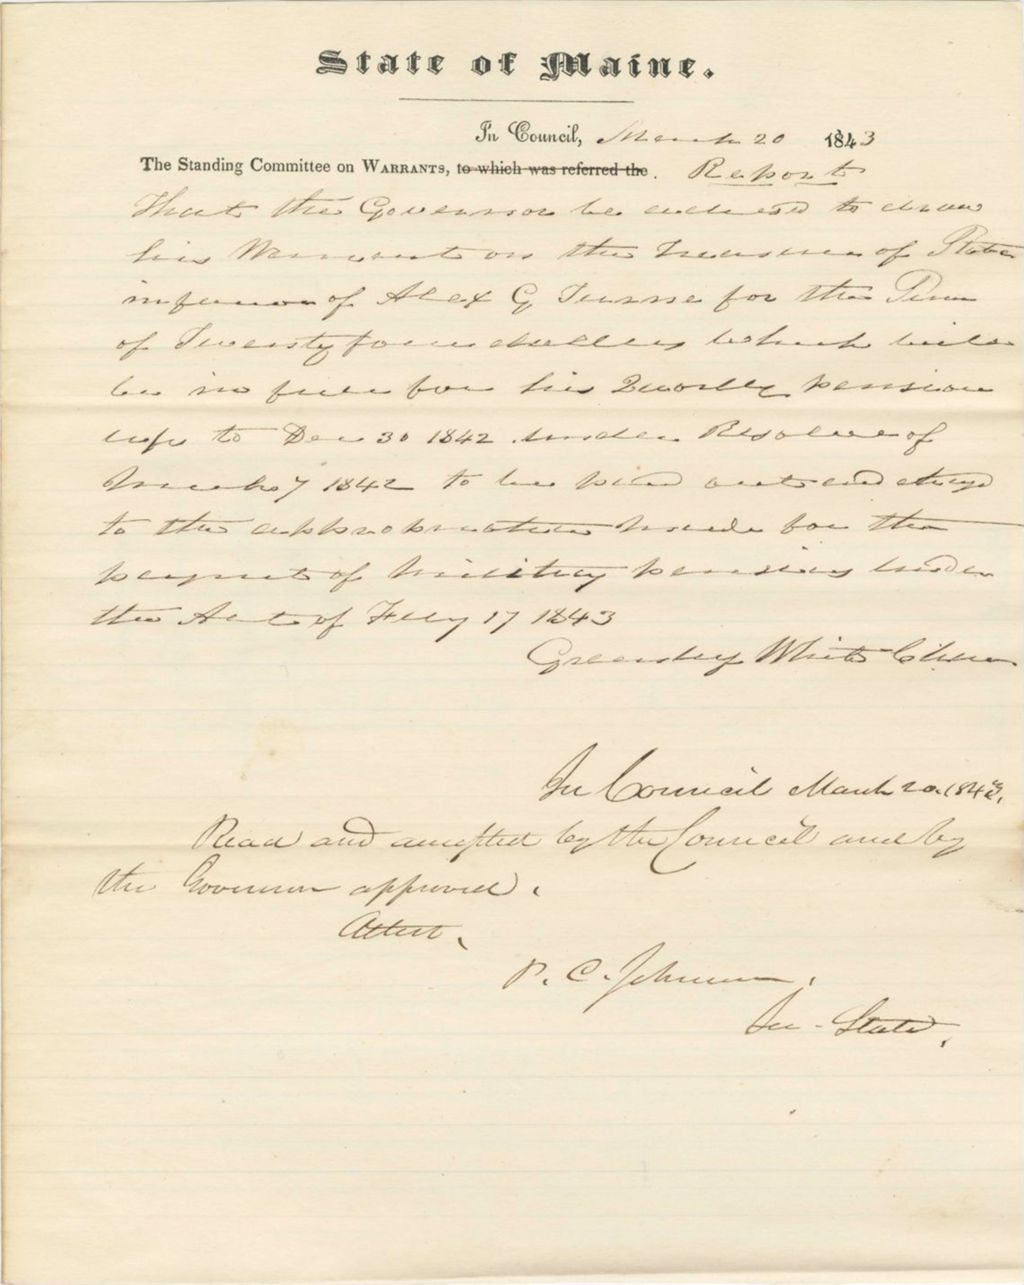 State of Maine.
In Council, March 20 1843
The Standing Committee on WARRANTS, to which was referred the. Report
That the Governor be advised to draw
his Warrant on the Treasurer of State
in favor of Alex G for the Sum
of Twenty four dollars which will
be in full for his pension
up to Dec 30 1842 under Resolve of
March 7 1842 to be paid out and
to the appropriation made for the
of military pensions under
the Act of Feby 17 1843
White Chm
In Council March 20. 1843.
Read and accepted by the Council and by
the Governor approved.
Attest.
P. C. Johnson.
Sec. State.